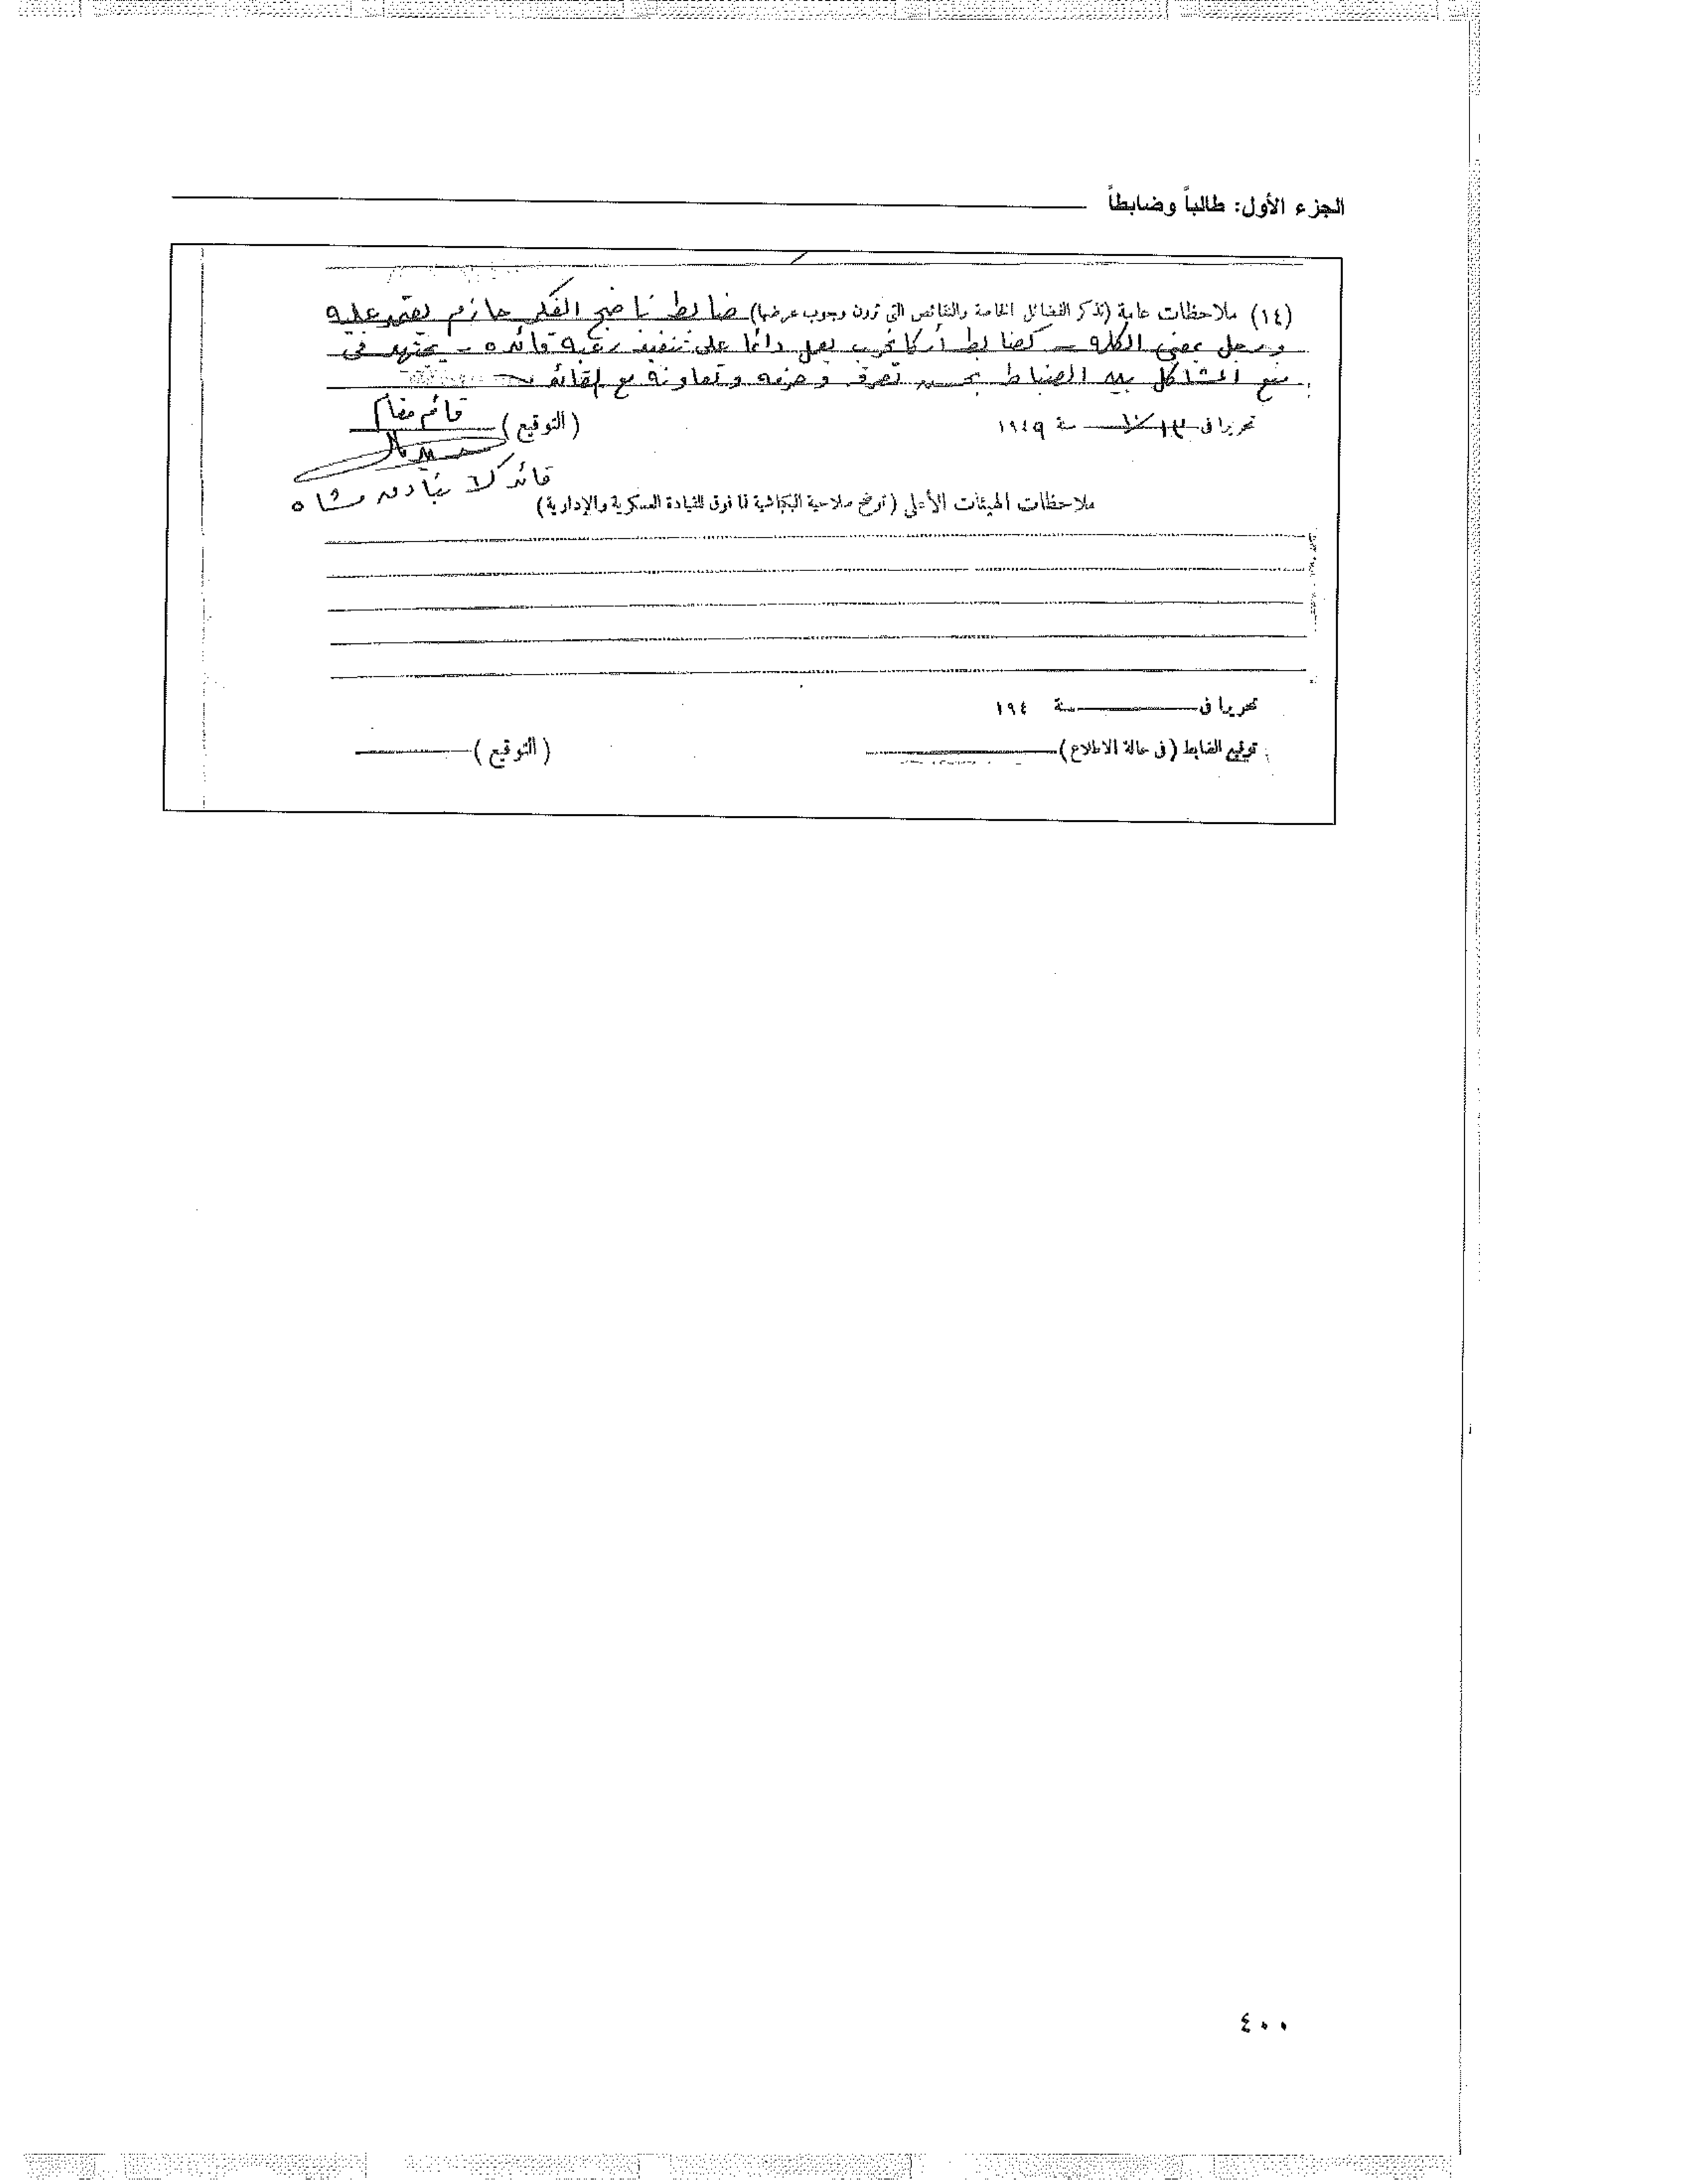 الجزء الأول: طالباً وضابطاً
(١٤) ملاحظات عامة (تذكر الفضائل الخاصة والنقائص التى ترون وجوب عرضها) ضابط ناضج الفكر حازم يعتمد عليه
ورجل بمعنى الكلمة - كضابط أركانحرب يعمل دائما على تنفيذ رغبة قائده - يجتهد فى
منع المشاكل بين الضباط بحسن تصرفه وحزمه وتعاونه مع القائد
تحريرا فى ١٣/١٠ سنة ١٩٤٩
(التوقيع) قائم مقام
قائد ك٦ بنادق مشاه
ملاحظات الهيئات الأعلى (توضح صلاحية البكباشية فما فوق للقيادة العسكرية والإدارية)
تحريرا فى سنة ١٩٤
توقيع الضابط (فى حالة الاطلاع) (التوقيع)
٤٠٠